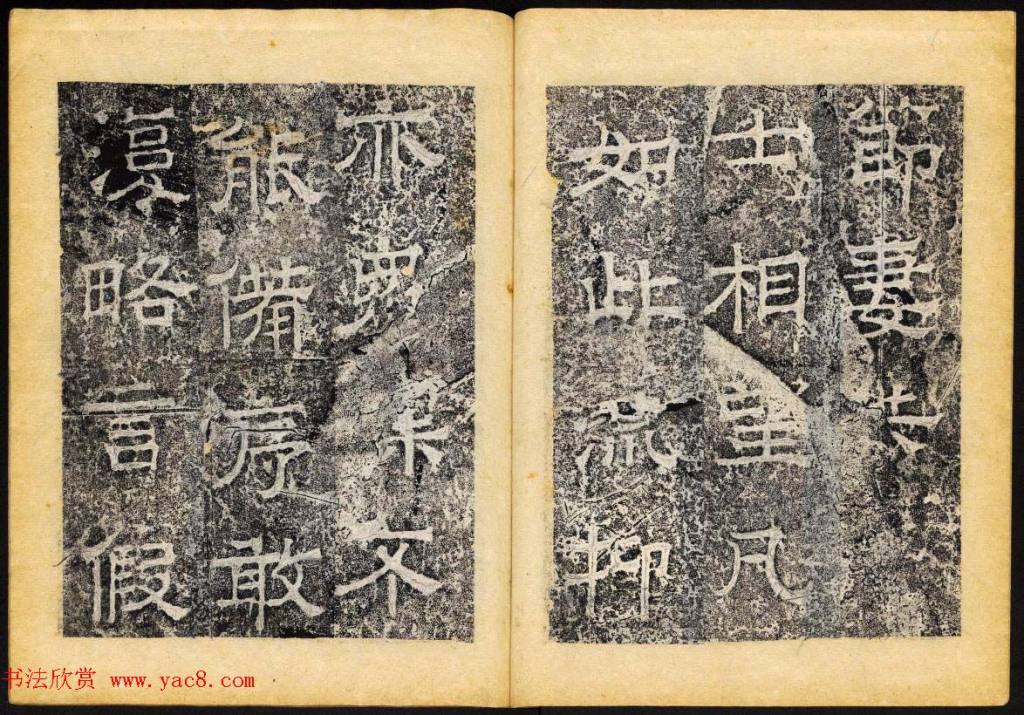 節妻
士相望凡
如此流抑
亦不
能備序敢
略言假
书法欣赏 www.yac8.com